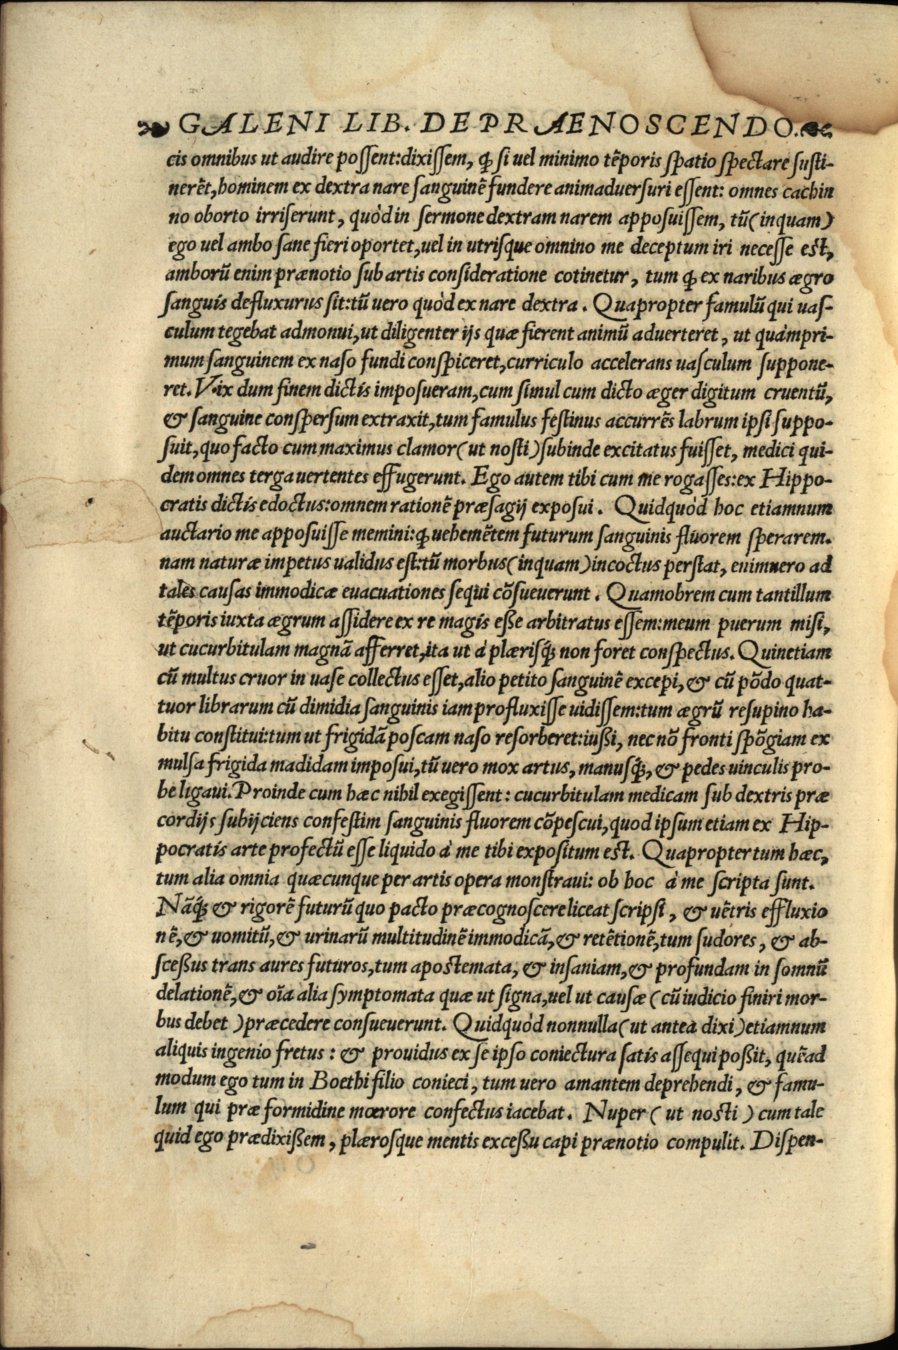 GALENI LIB. DE PRAENOSCENDO.
cis omnibus ut audire possent:dixissem, ꝙ si uel minimo tẽporis spatio spectare susti-
nerẽt,hominem ex dextra nare sanguinẽ fundere animaduersuri essent: omnes cachin
no oborto irriserunt, quòd in sermone dextram narem apposuissem, tũ(inquam)
ego uel ambo sane fieri oportet,uel in utrisque omnino me deceptum iri necesse est,
amborũ enim prænotio sub artis consideratione cotinetur, tum ꝙ ex naribus ægro
sanguis defluxurus sit:tũ uero quòd ex nare dextra. Quapropter famulũ qui uas-
culum tegebat admonui,ut diligenter ijs quæ fierent animũ aduerteret, ut quàmpri-
mum sanguinem ex naso fundi conspiceret,curriculo accelerans uasculum suppone-
ret. Vix dum finem dictis imposueram,cum simul cum dicto æger digitum cruentũ,
& sanguine conspersum extraxit,tum famulus festinus accurrẽs labrum ipsi suppo-
suit,quo facto cum maximus clamor(ut nosti)subinde excitatus fuisset, medici qui-
dem omnes terga uertentes effugerunt. Ego autem tibi cum me rogasses:ex Hippo-
cratis dictis edoctus:omnem rationẽ præsagij exposui. Quidquòd hoc etiamnum
auctario me apposuisse memini:ꝙ uehemẽtem futurum sanguinis fluorem sperarem.
nam naturæ impetus ualidus est:tũ morbus(inquam)incoctus perstat, enimuero ad
tales causas immodicæ euacuationes sequi cõsueuerunt. Quamobrem cum tantillum
tẽporis iuxta ægrum assidere ex re magis eße arbitratus essem:meum puerum misi,
ut cucurbitulam magnã afferret,ita ut à plærisq́; non foret conspectus. Quinetiam
cũ multus cruor in uase collectus esset,alio petito sanguinẽ excepi,& cũ põdo quat-
tuor librarum cũ dimidia sanguinis iam profluxisse uidissem:tum ægrũ resupino ha-
bitu constitui:tum ut frigidã poscam naso resorberet:iußi, nec nõ fronti spõgiam ex
mulsa frigida madidam imposui,tũ uero mox artus, manusq́;, & pedes uinculis pro-
be ligaui. Proinde cum hæc nihil exegissent: cucurbitulam medicam sub dextris præ
cordijs subijciens confestim sanguinis fluorem cõpescui,quod ipsum etiam ex Hip-
pocratis arte profectũ esse liquido à me tibi expositum est. Quapropter tum hæc,
tum alia omnia quæcunque per artis opera monstraui: ob hoc à me scripta sunt.
Nãq́; & rigorẽ futurũ quo pacto præcognoscere liceat scripsi, & uẽtris effluxio
nẽ,& uomitũ,& urinarũ multitudinẽ immodicã,& retẽtionẽ,tum sudores, & ab-
sceßus trans aures futuros,tum apostemata, & insaniam,& profundam in somnũ
delationẽ,& oĩa alia symptomata quæ ut signa,uel ut causæ (cũ iudicio finiri mor-
bus debet )præcedere consueuerunt. Quidquòd nonnulla(ut antea dixi)etiamnum
aliquis ingenio fretus : & prouidus ex se ipso coniectura satis assequi poßit, quẽad
modum ego tum in Boethi filio conieci, tum uero amantem deprehendi, & famu-
lum qui præ formidine mœrore confectus iacebat. Nuper ( ut nosti ) cum tale
quid ego prædixißem, plærosque mentis exceßu capi prænotio compulit. Dispen-